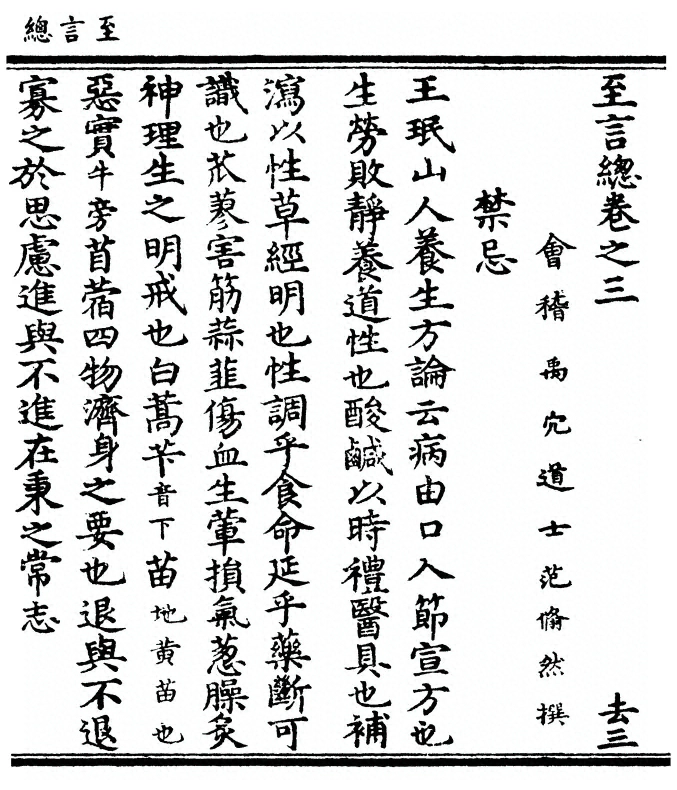 至言總
至言總卷之三 去三
會稽禹穴道士范翛然撰
禁忌
王珉山人養生方論云病由口入節宣方也
生勞敗靜養道性也酸鹹以時禮醫具也補
瀉以性草經明也性調乎食命延乎藥斷可
識也菾蓼害筋蒜韮傷血生葷損氣葱臊炙
神理生之明戒也白蒿芐音下苗地黃苗也
惡實牛旁苜蓿四物濟身之要也退與不退
寡之於思慮進與不進在秉之常志